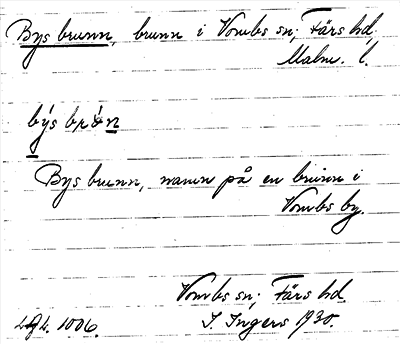 Bys brunn, brunn i Vombs sn; Färs hd,
Malm. l.
Bys brunn, namn på en brunn i
Vombs by.
Vombs sn; Färs hd.
1006. I. Ingers 1930.